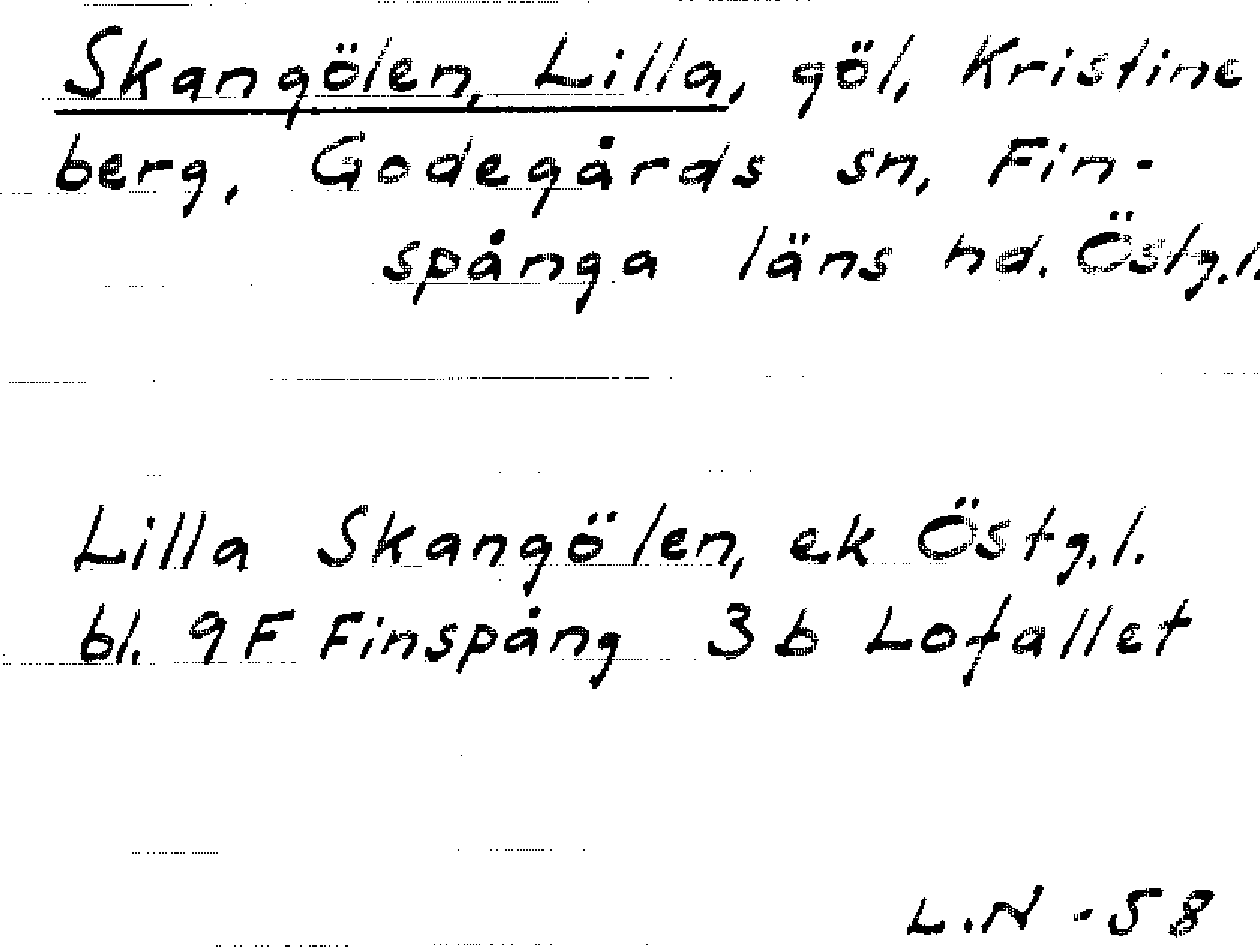 Skangölen, Lilla, göl, Kristine
berg, Godegårds sn, Fin-
spånga läns hd. Östg.l.
Lilla Skangölen, ek Östg.l.
bl. 9F Finspång 3b Lofallet
L.N -58